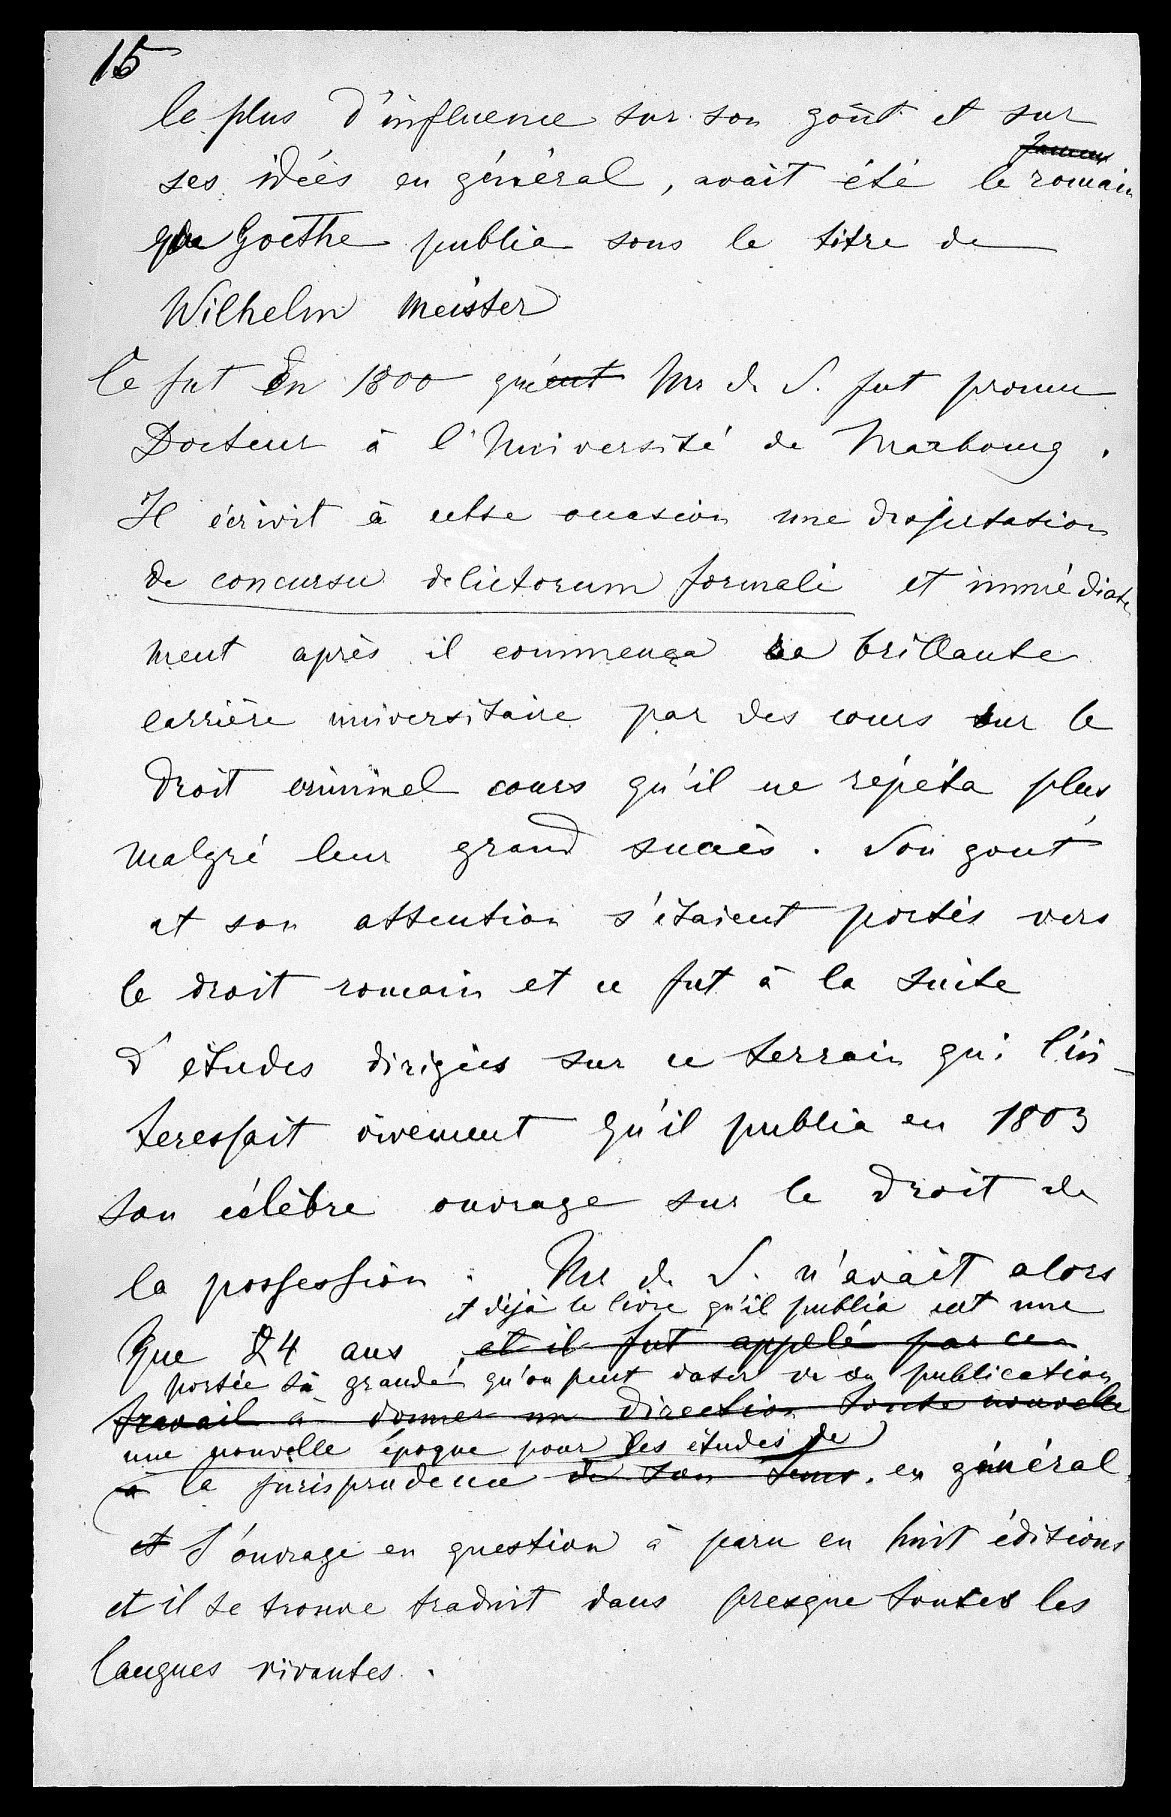 15
le plus d'influence sur son goût et sur
ses idées en général, avait été le romain
que Goethe publia sous le titre de
Wilhelm Meister
Ce fut En 1800 qu'eut Mr d. S. fut promu
Docteur à l'Université de Marbourg.
Il écrivit à cette occasion une
de concursu delictorum formali et immédiate
ment après il commença sa brillante
carrière universitaire par des cours sur le
droit criminel cours qu'il ne répéta plus
malgré leur grand succès. Son gout
et son attention s'étaient portés vers
le droit romain et ce fut à la suite
d'études dirigées sur ce terrain qui l'in-
teressait vivement qu'il publia en 1803
son célèbre ouvrage sur le droit de
la possession. Mr d. S. n'avait alors
et déjà le livre qu'il publia eut une
que 24 ans, et il fut appelé par ce
portée si grande qu'on peut dater de sa publication
travail à donner un direction toute nouvelle
une nouvelle époque pour les études de
à la jurisprudence de son tems. en général.
et l'ouvrage en question à paru en huit éditions
et il se trouve traduit dans presque toutes les
langues vivantes.